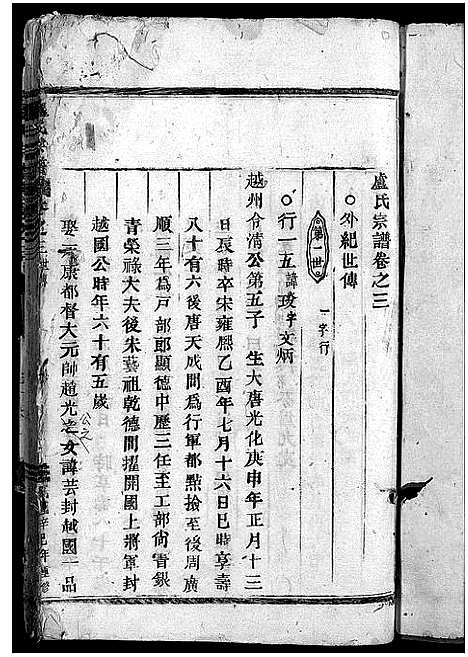 盧氏宗譜卷之三
○外紀世傳
第一世 一字行
○行一五諱琼字文炳
越州令清公第五子 生大唐光化庚申年正月十三
日辰時卒宋雍熙乙酉年七月十六日巳時享壽
八十有六後唐天成間爲行軍都點撿至後周廣
順三年爲戶部郎顯德中歷三任至工部尙書銀
青榮祿大夫後朱藝祖乾德間擢開國上將軍封
越國公時年六十有五歲
娶 康都督大元帥趙光之公之女諱芸封越國一品